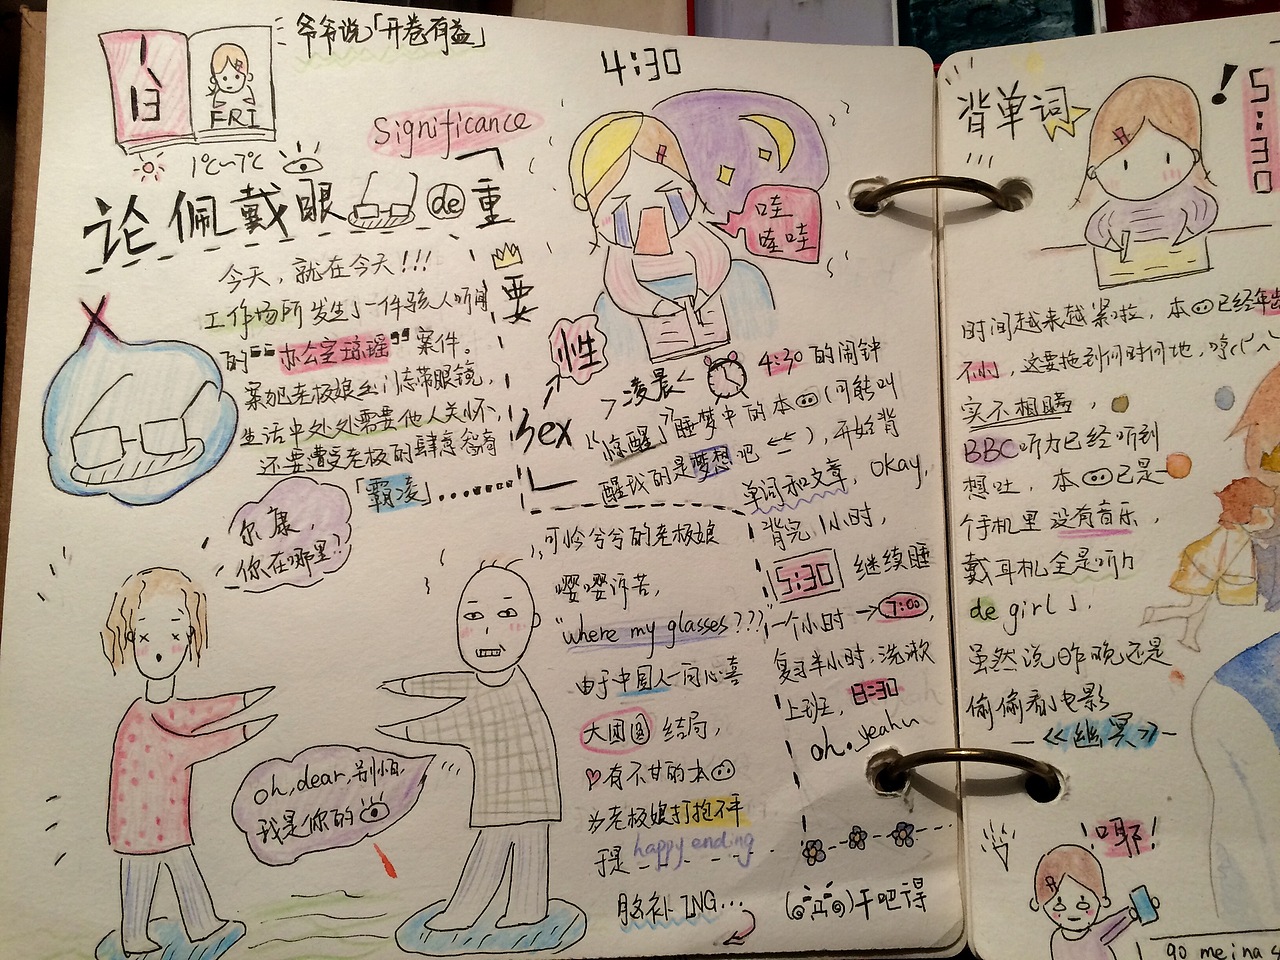 爷爷说「开卷有益」
1
13
FRI
1℃~7℃
Significance
论佩戴眼 de 重
要
性
今天，就在今天!!!
工作场所发生了一件骇人听闻
的“办公室琼瑶”案件。
案如老板娘出门忘带眼镜，
生活中处处需要他人关怀，
还要遭受老板的肆意
「霸凌」……
尔康，
你在哪里?!
oh, dear, 别怕，
我是你的
可怜兮兮的老板娘
嘤嘤诉苦，
“where my glasses???”
由于中国人一向心喜
大团圆结局，
有不甘的本
为老板娘打抱不平
于是 happy ending
脑补ING...
4:30
哇
哇哇
凌晨 4:30 的闹钟
“惊醒”睡梦中的本 (可能叫
醒我的是梦想吧), 开始背
单词和文章, okay,
背完1小时,
5:30 继续睡
一个小时→7:00,
复习半小时, 洗漱
上班, 8:30
oh. yeahu
干吧得
背单词
!
5:30
时间越来越紧啦, 本 已经年
不小, 这要拖到何时何地, 哼
实不相瞒,
BBC听力已经听到
想吐, 本 已是一
个手机里没有音乐,
戴耳机全是听力
de girl」.
虽然说昨晚还是
偷偷看了电影
—《幽冥》—
耶!
go meina